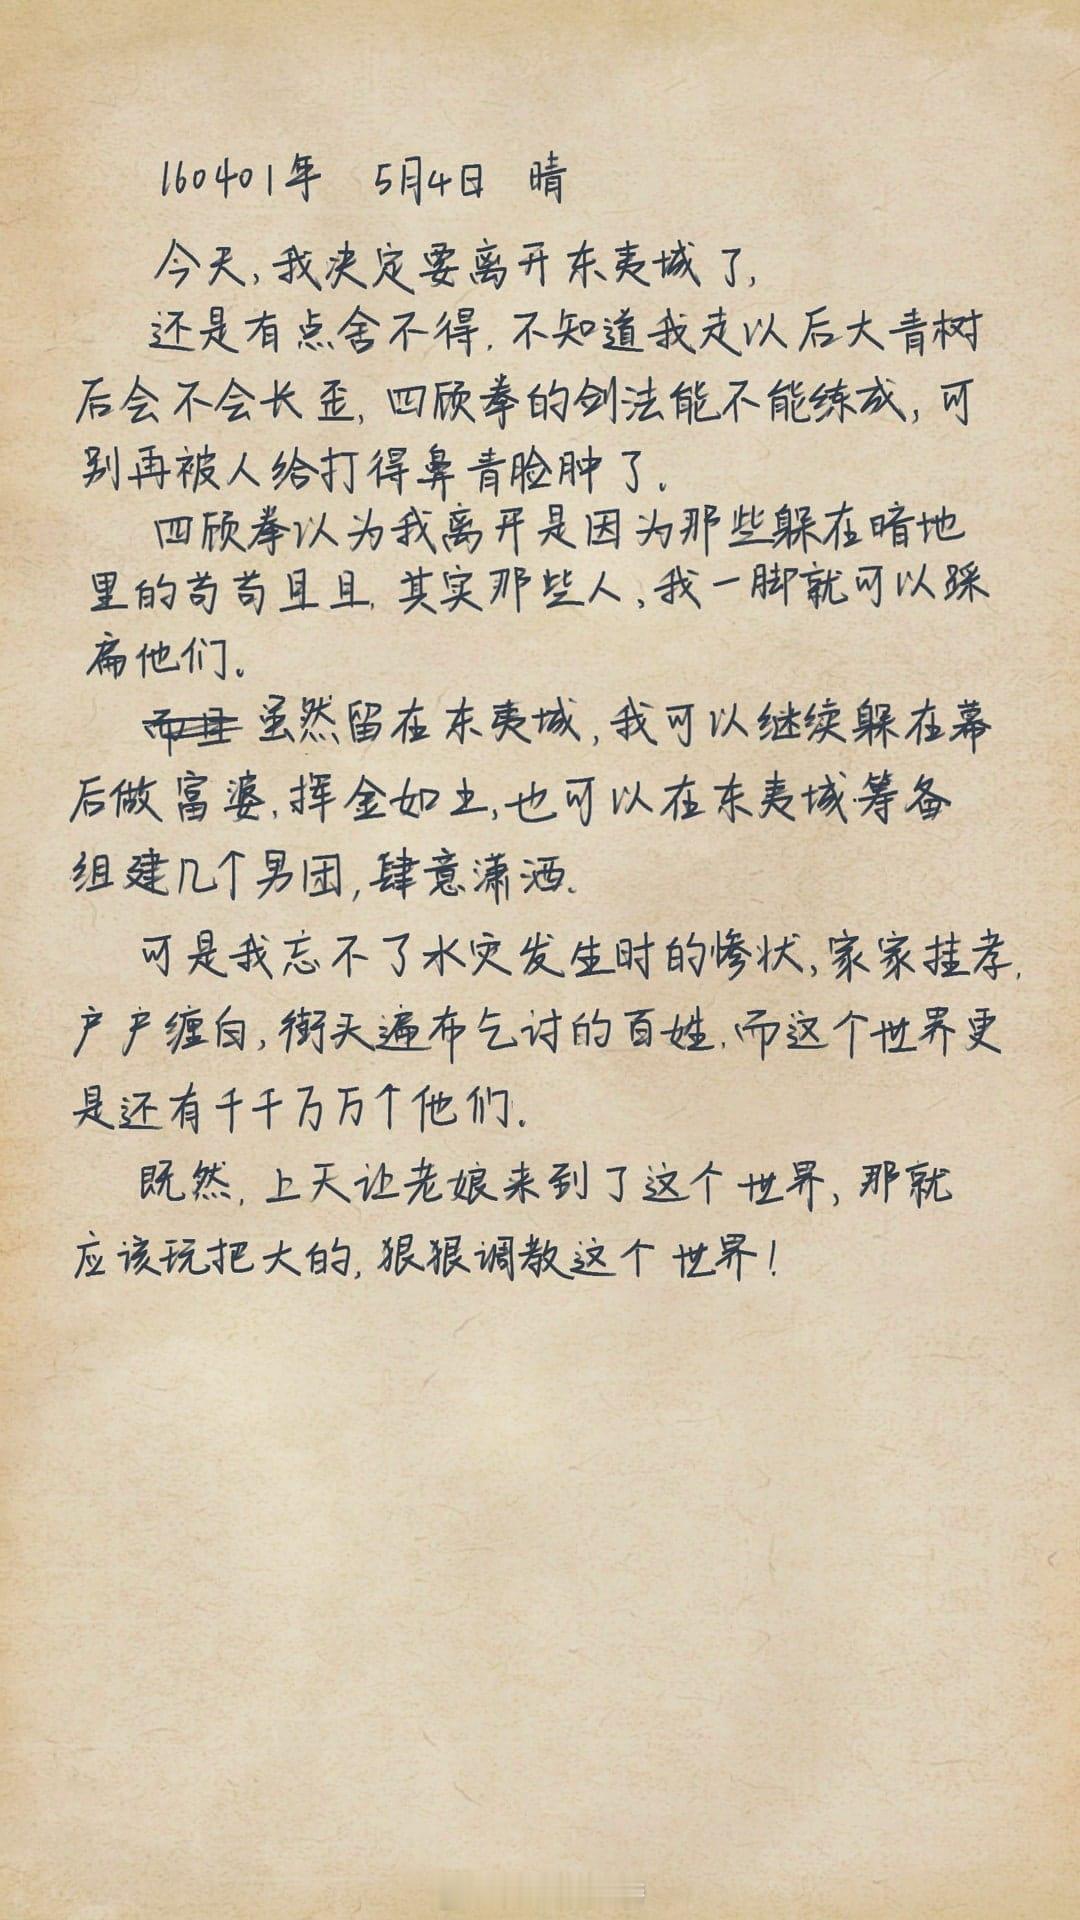 160401年 5月4日 晴
今天,我决定要离开东夷城了,
还是有点舍不得.不知道我走以后大青树
后会不会长歪,四顾拳的剑法能不能练成,可
别再被人给打得鼻青脸肿了。
四顾拳以为我离开是因为那些躲在暗地
里的苟苟且且.其实那些人,我一脚就可以踩
扁他们。
而且 虽然留在东夷城,我可以继续躲在幕
后做富婆.挥金如土,也可以在东夷城筹备
组建几个男团,肆意潇洒.
可是我忘不了水灾发生时的惨状,家家挂孝.
户户缠白,街头遍布乞讨的百姓.而这个世界更
是还有千千万万个他们.
既然,上天让老娘来到了这个世界,那就
应该玩把大的,狠狠调教这个世界!